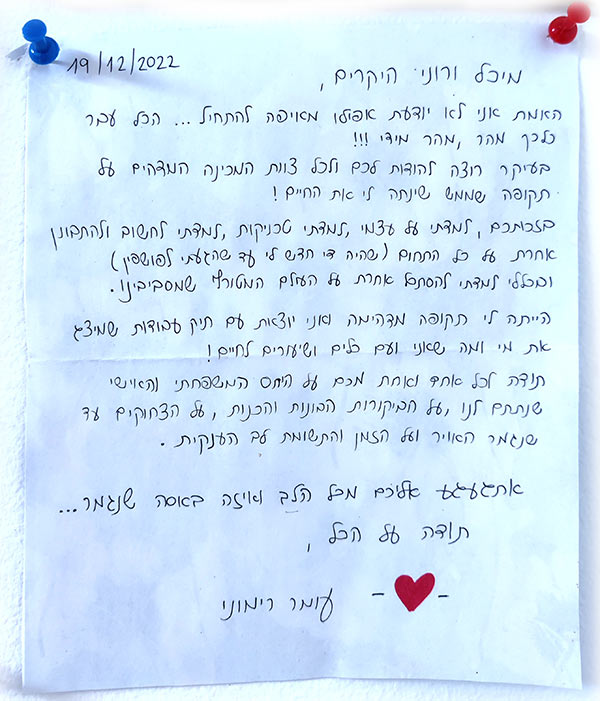 19/12/2022
מיכל ורוני היקרים,
האמת אני לא יודעת אפילו מאיפה להתחיל... הכל עבר
כלכך מהר, מהר מידי!!!
בעיקר רוצה להודות לכם ולכל צוות המכינה המדהים על
תקופה שממש שינתה לי את החיים!
בזכותכם, למדתי על עצמי, למדתי טכניקות, למדתי לחשוב ולהתבונן
אחרת על כל התחום (שהיה די חדש לי עד שהגעתי לפושפין)
ובכללי למדתי להסתכל אחרת על העולם המטורף שמסביבינו.
הייתה לי תקופה מדהימה ואני יוצאת עם תיק עבודות שמייצג
את מי ומה שאני ועם כלים ושיעורים לחיים!
תודה לכל אחד ואחת מכם על היחס המשפחתי והאישי
שנתתם לנו, על הביקורות הבונות והכנות, על הצחוקים עד
שנגמר האויר ועל הזמן והתשומת לב הענקית.
אתגעגע אליכם מכל הלב ואיזה באסה שנגמר...
תודה על הכל,
עומר רימוני